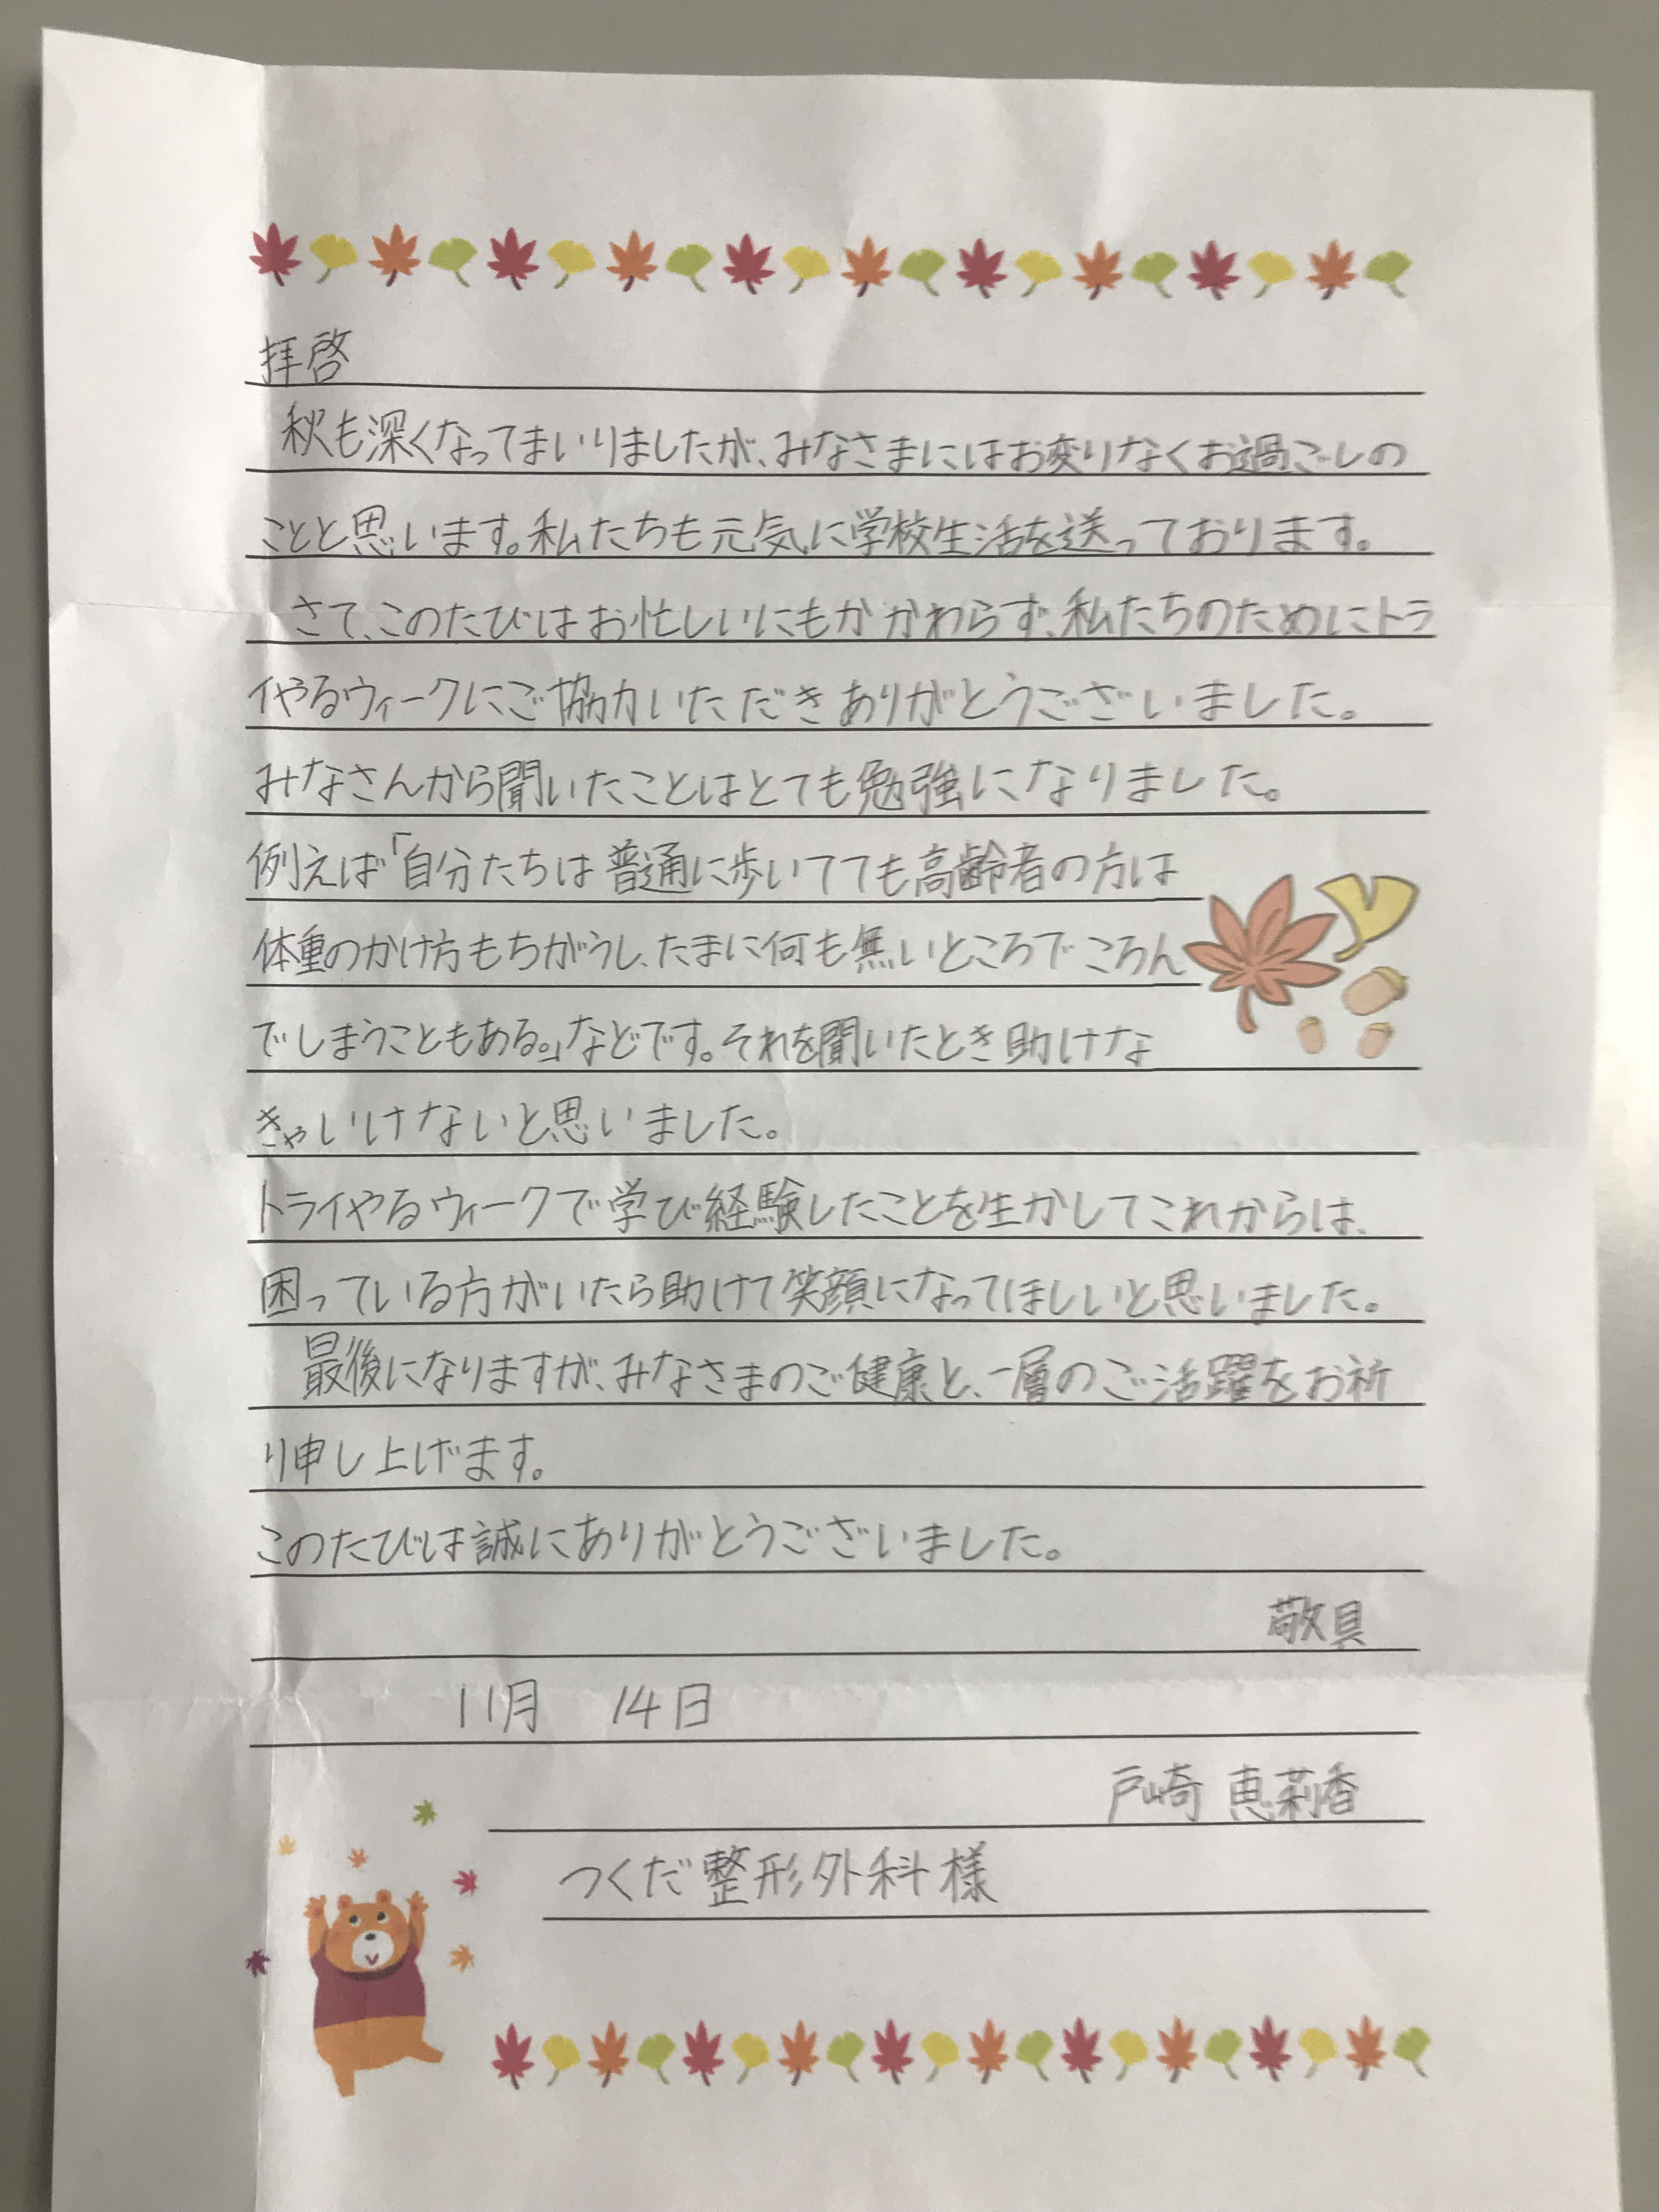 拝啓
秋も深くなってまいりましたが、みなさまにはお変りなくお過ごしの
ことと思います。私たちも元気に学校生活を送っております。
さて、このたびはお忙しいにもかかわらず、私たちのためにトラ
イやるウィークにご協力いただきありがとうございました。
みなさんから聞いたことはとても勉強になりました。
例えば「自分たちは普通に歩いてても高齢者の方は
体重のかけ方もちがうし、たまに何も無いところでころん
でしまうこともある。」などです。それを聞いたとき助けな
きゃいけないと思いました。
トライやるウィークで学び経験したことを生かしてこれからは、
困っている方がいたら助けて笑顔になってほしいと思いました。
最後になりますが、みなさまのご健康と、一層のご活躍をお祈
り申し上げます。
このたびは誠にありがとうございました。
敬具
11月 14日
戸崎 恵莉香
つくだ整形外科様